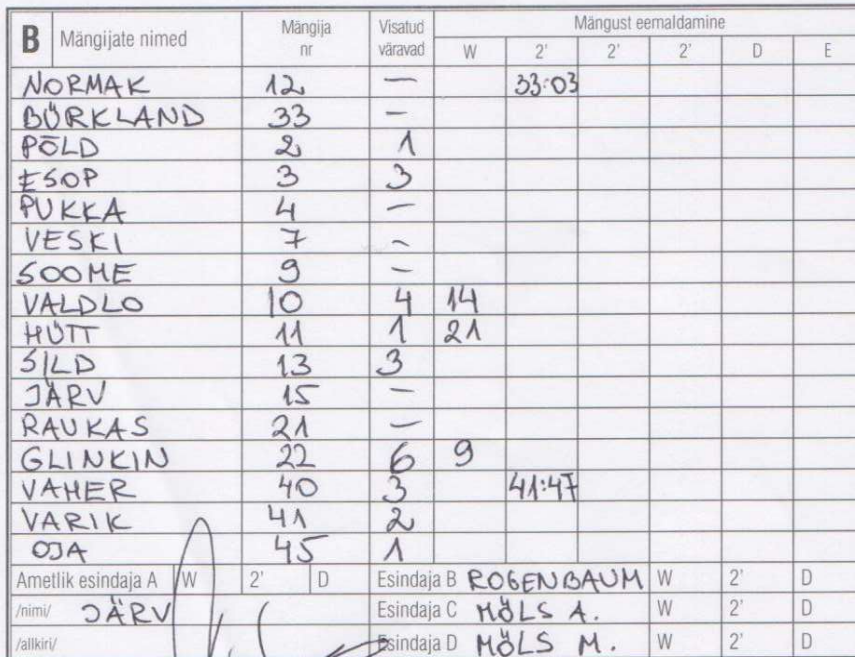 B Mängijate nimed Mängija nr Visatud väravad Mängust eemaldamine
W 2' 2' 2' D E
NORMAK 12 — 33:03
BÜRKLAND 33 —
PÕLD 2 1
ESOP 3 3
PUKKA 4 —
VESKI 7 -
SOOME 9 —
VALDLO 10 4 14
HÜTT 11 1 21
SILD 13 3
JÄRV 15 —
RAUKAS 21 —
GLINKIN 22 6 9
VAHER 40 3 41:47
VARIK 41 2
OJA 45 1
Ametlik esindaja A W 2' D Esindaja B ROGENBAUM W 2' D
/nimi/ JÄRV Esindaja C MÖLS A. W 2' D
/allkiri/ Esindaja D MÖLS M. W 2' D